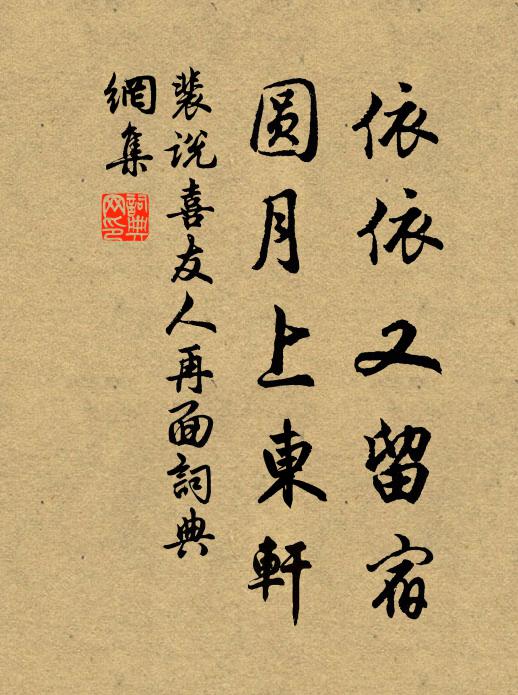 依依又留宿
圆月上東軒
裴说喜友人再面詞典
網集
詞典
网印